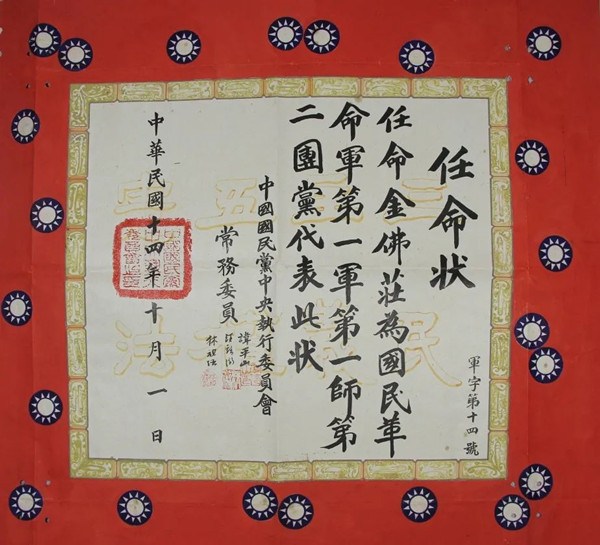 軍字第十四號
任命状
任命金佛莊為國民革
命軍第一軍第一師第
二團黨代表此状
中國國民黨中央執行委員會
常務委員
譚平山
中華民國十四年十月一日